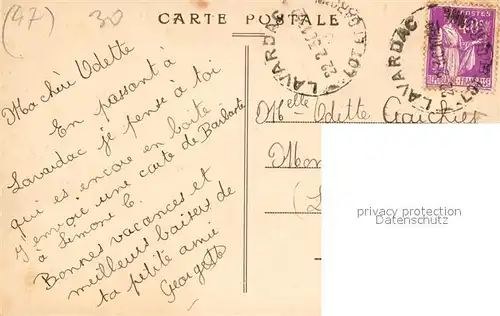 (47)
30
CARTE POSTALE
LAVARDAC
LOT
LAVARDAC
POSTES
Ma chère Odette
En passant à
Lavardac je pense à toi
qui es encore en boite
J'envoie une carte de Barbaste
à Simone C.
Bonnes vacances et
meilleurs baisers de
ta petite amie
Georgette
Melle Odette
privacy protection
Datenschutz